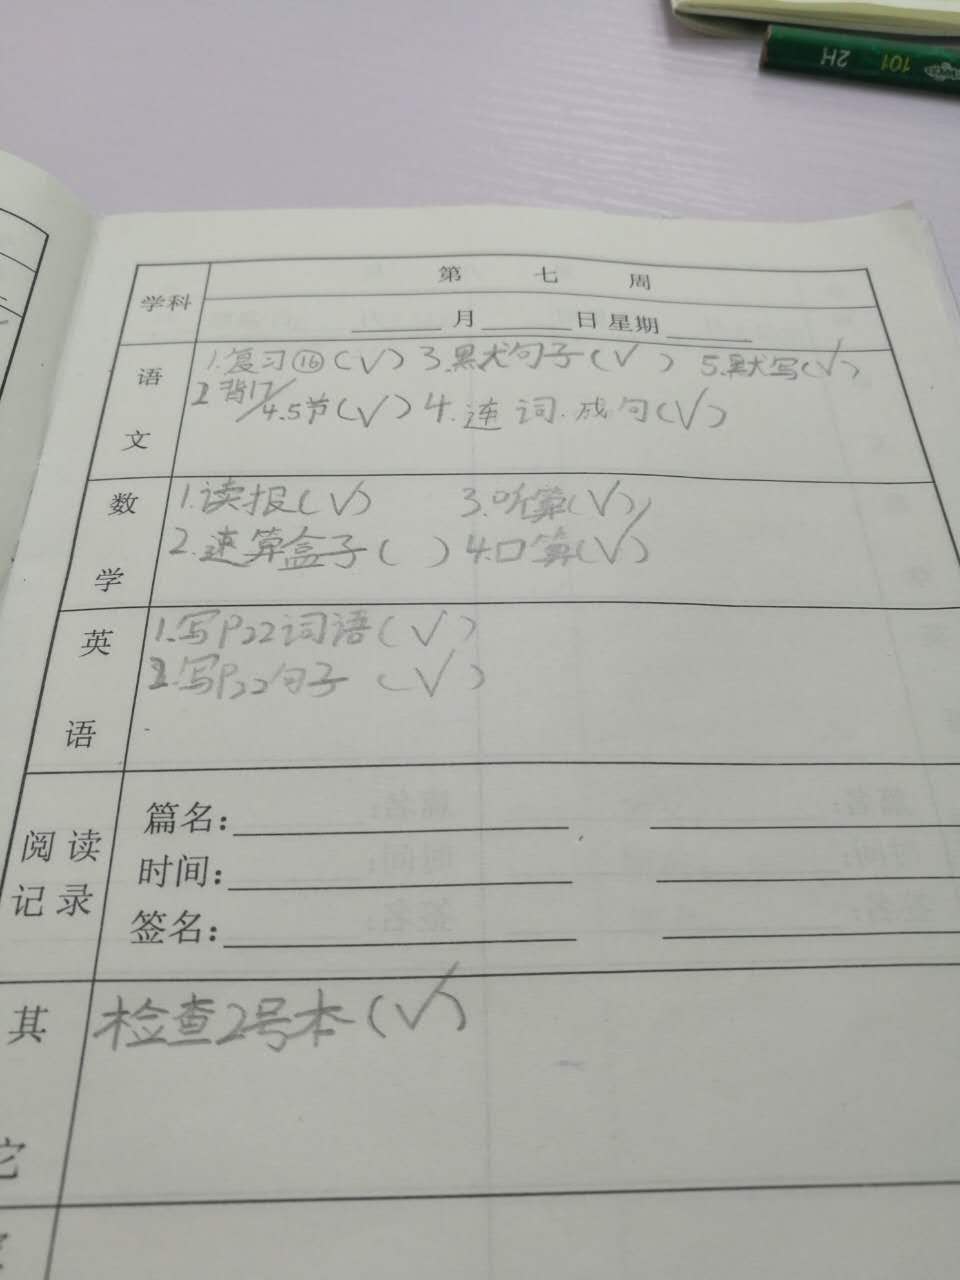 2H 101
第 七 周
学科
月 日 星期
语文
1.复习⑯(√) 3.默犬句子(√) 5.默写(√)
2.背17/4.5节(√) 4.连词.成句(√)
数学
1.读报(√) 3.听算(√)
2.速算盒子( ) 4.口算(√)
英语
1.写P22词语(√)
2.写P22句子(√)
阅读记录
篇名:
时间:
签名:
其它
检查2号本(√)